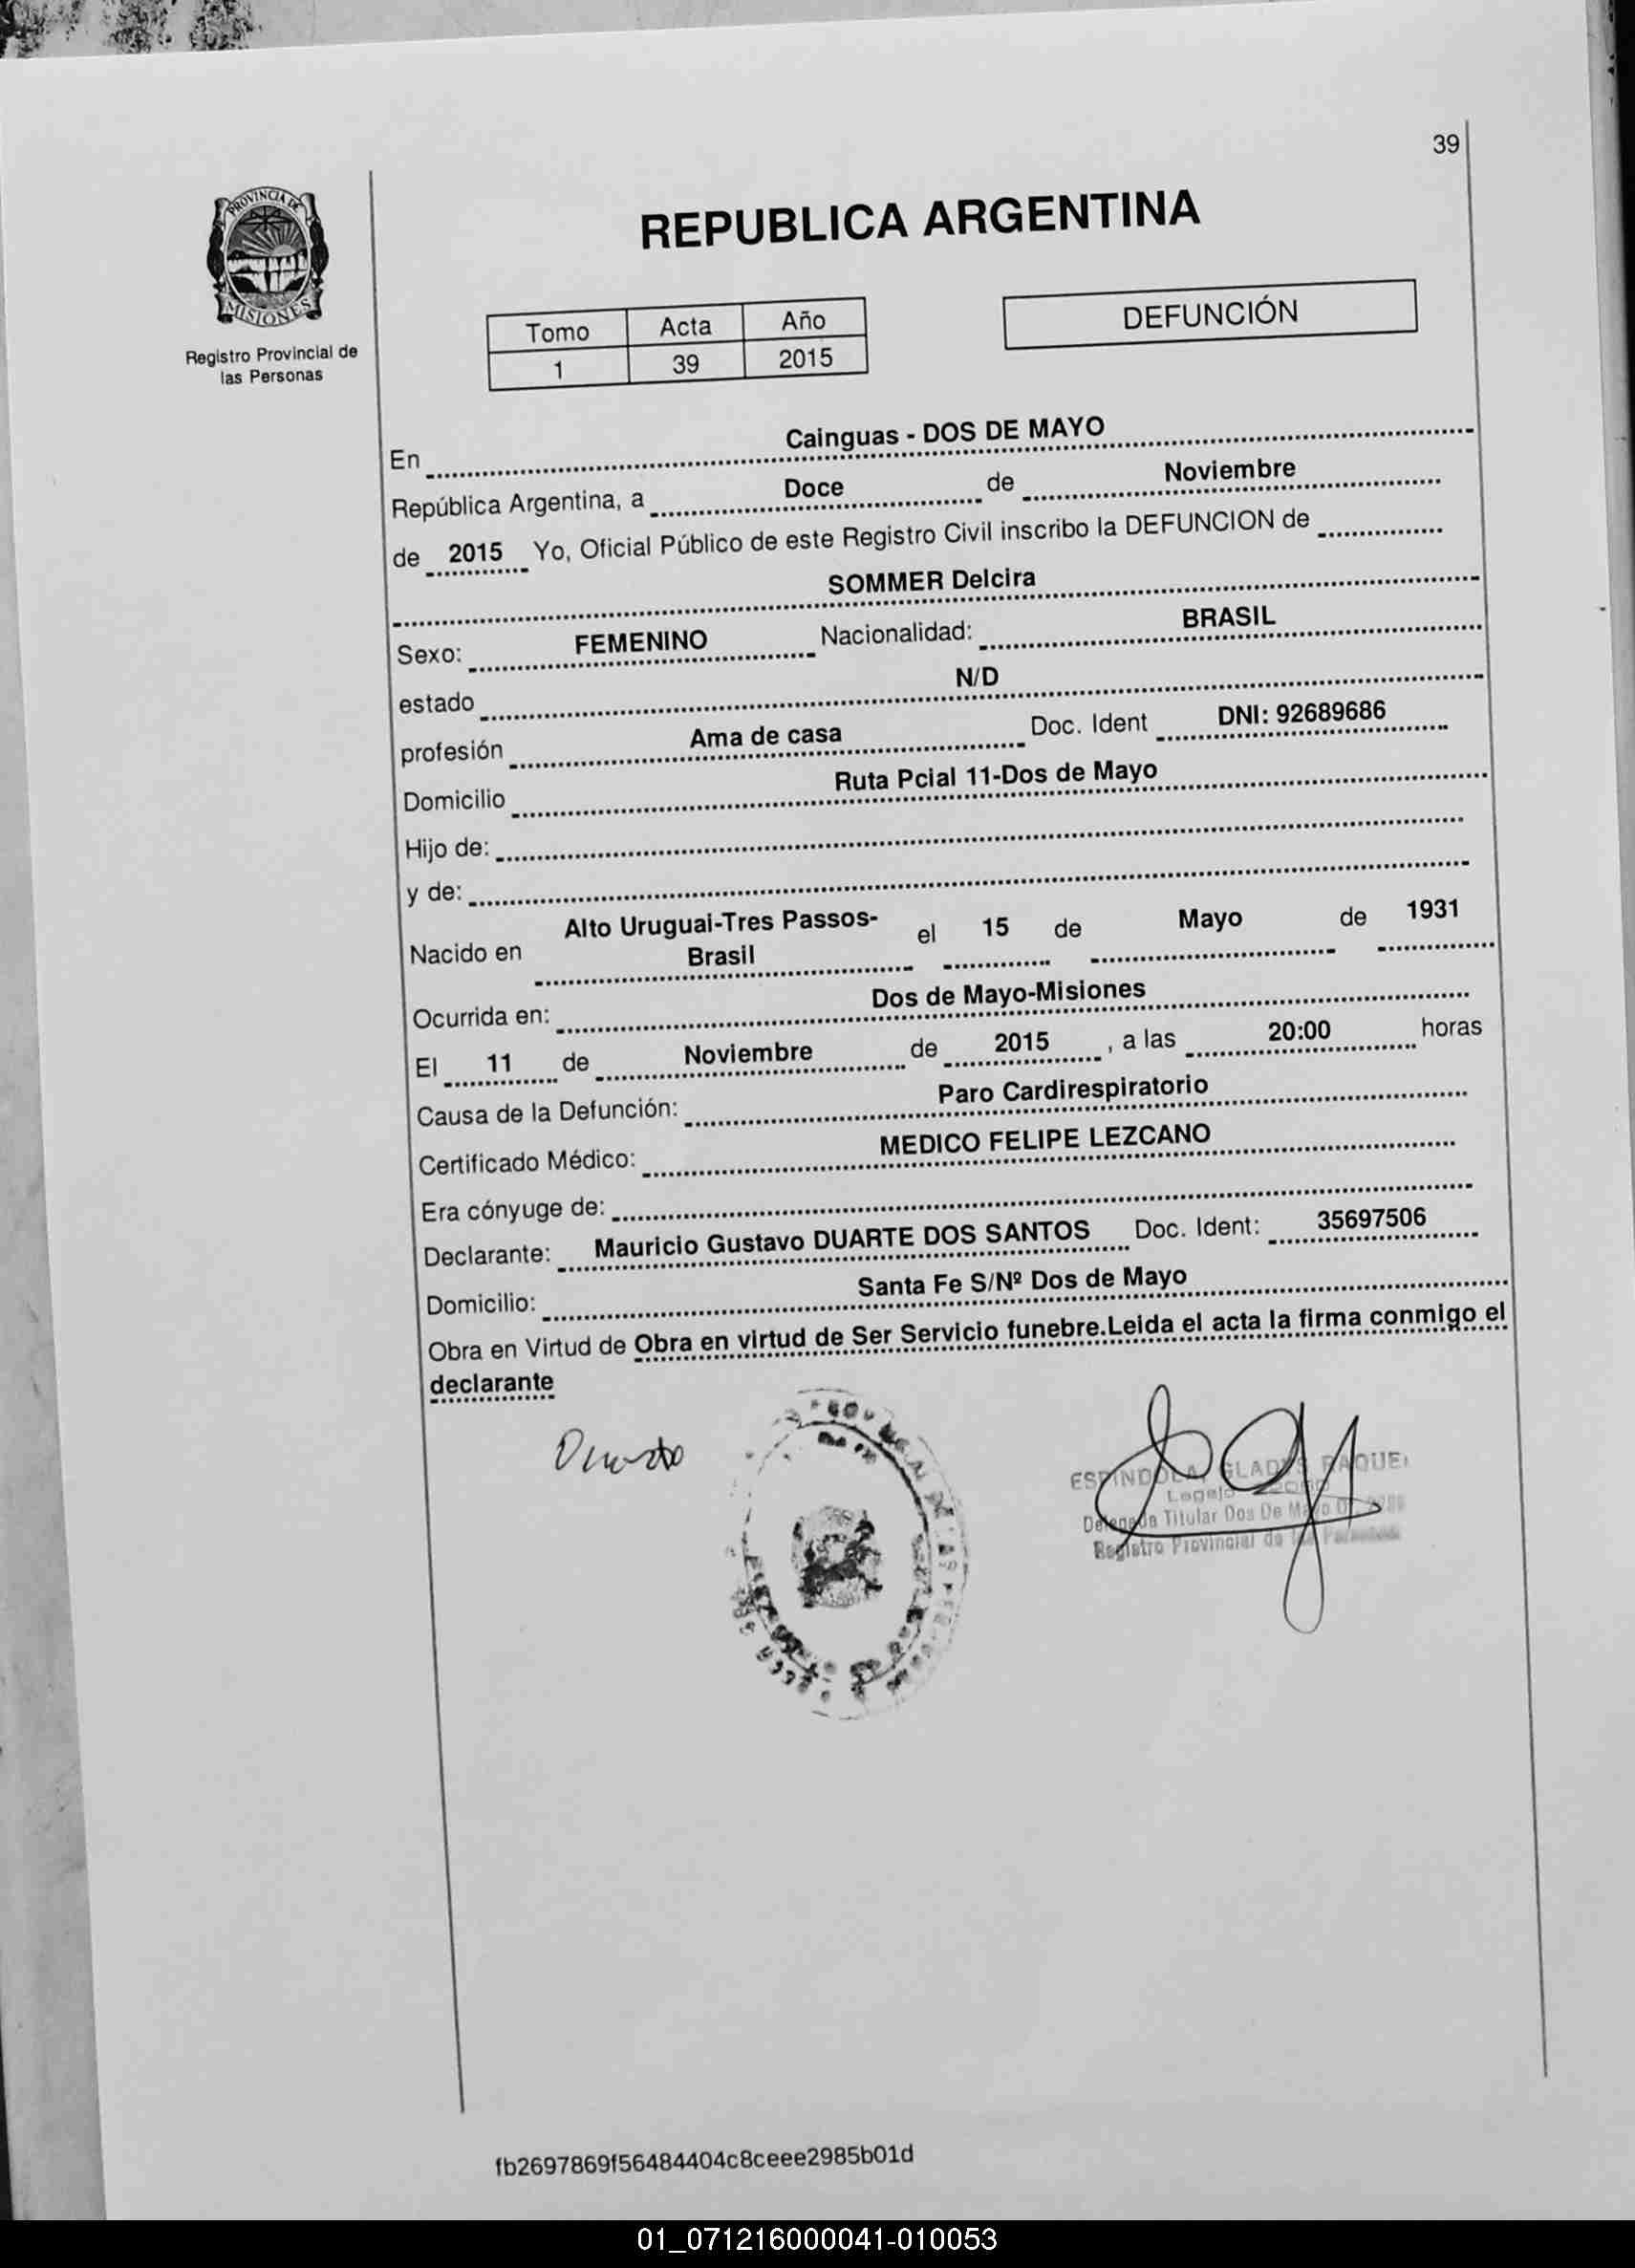 39
PROVINCIA DE
MISIONES
Registro Provincial de
las Personas
REPUBLICA ARGENTINA
Tomo Acta Año
1 39 2015
DEFUNCIÓN
En Cainguas - DOS DE MAYO
República Argentina, a Doce de Noviembre
de 2015 Yo, Oficial Público de este Registro Civil inscribo la DEFUNCION de
SOMMER Delcira
Sexo: FEMENINO Nacionalidad: BRASIL
estado N/D
profesión Ama de casa Doc. Ident DNI: 92689686
Domicilio Ruta Pcial 11-Dos de Mayo
Hijo de:
y de:
Alto Uruguai-Tres Passos-
Nacido en Brasil el 15 de Mayo de 1931
Ocurrida en: Dos de Mayo-Misiones
El 11 de Noviembre de 2015 , a las 20:00 horas
Causa de la Defunción: Paro Cardirespiratorio
Certificado Médico: MEDICO FELIPE LEZCANO
Era cónyuge de:
Declarante: Mauricio Gustavo DUARTE DOS SANTOS Doc. Ident: 35697506
Domicilio: Santa Fe S/Nº Dos de Mayo
Obra en Virtud de Obra en virtud de Ser Servicio funebre.Leida el acta la firma conmigo el
declarante
ESPINDOLA, GLADYS RAQUEL
Legajo
Delegada Titular Dos De Mayo
Registro Provincial de las Personas
fb2697869f56484404c8ceee2985b01d
01_071216000041-010053